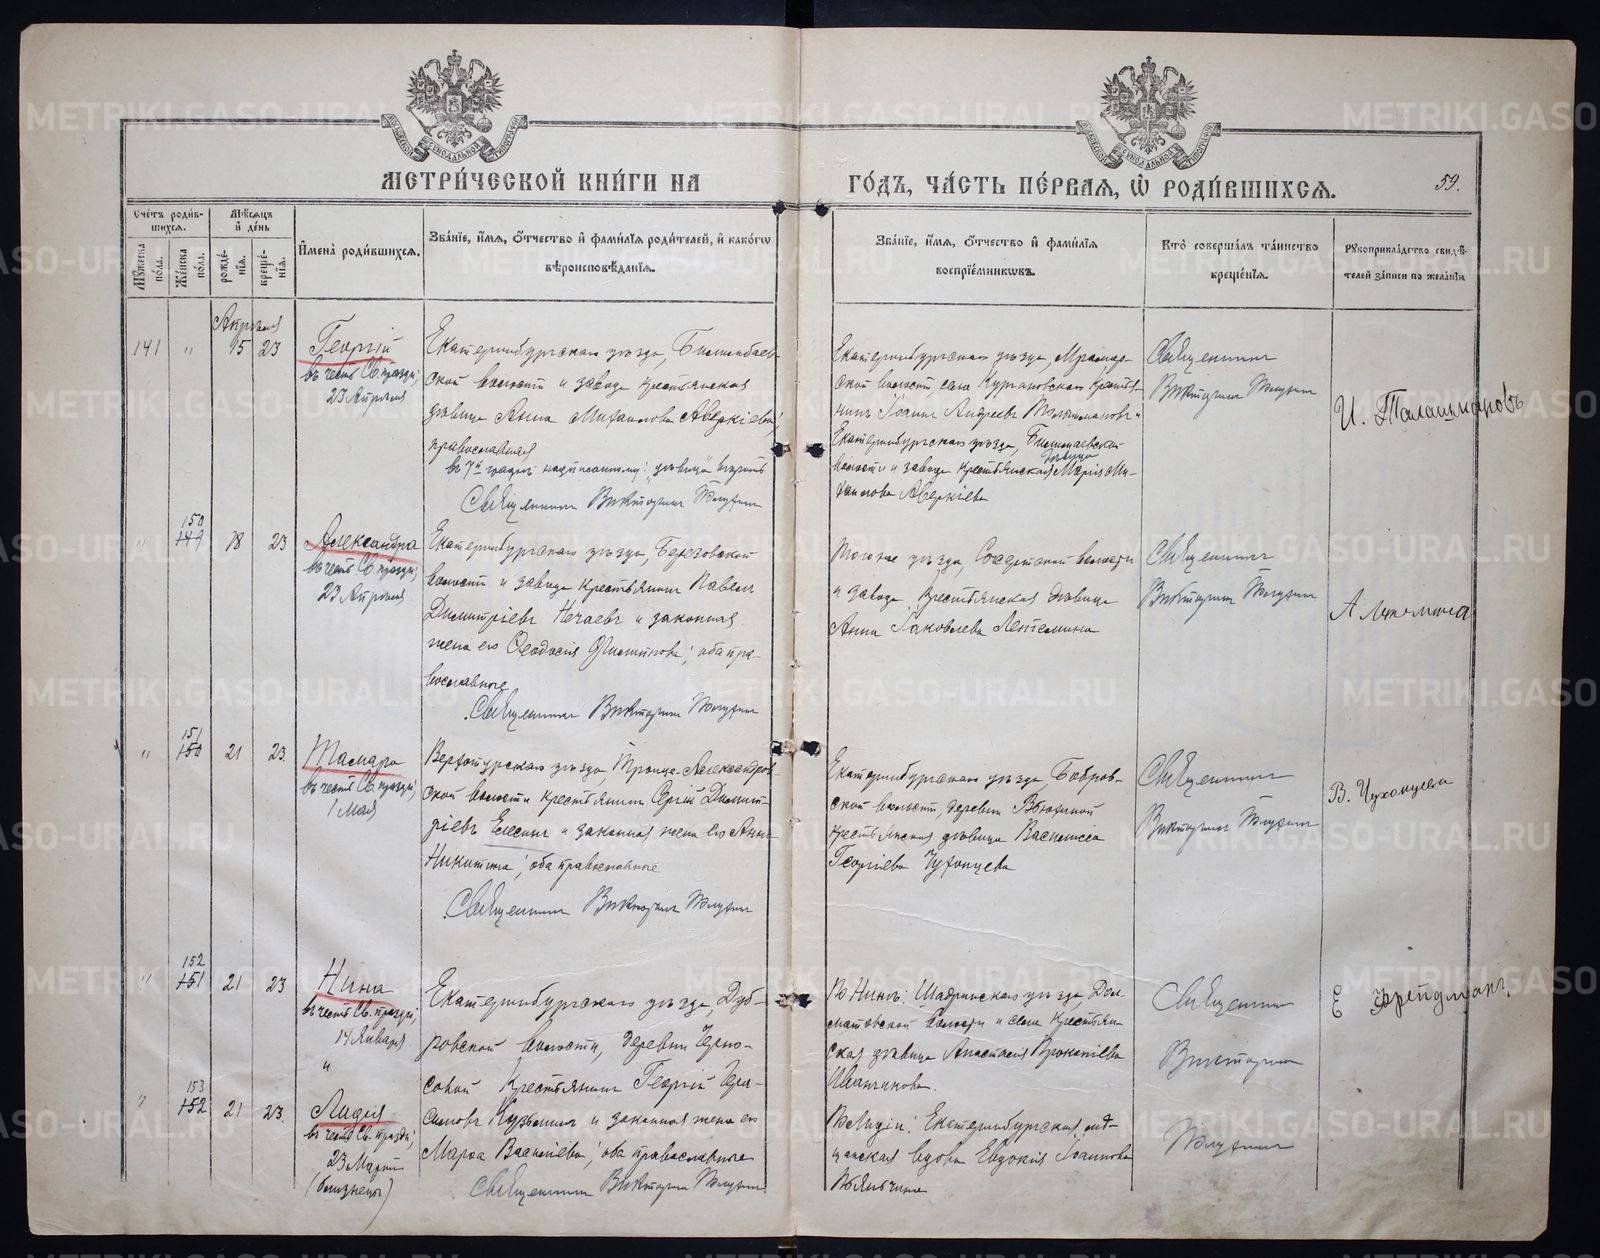 МЕТРИ́ЧЕСКОЙ КНИ́ГИ НА
ГО́ДЪ, ЧА́СТЬ ПЕ́РВАЯ, Ѡ РОДИ́ВШИХСЯ.
59.
Сче́тъ роди́в-
шихся.
Мѣ́сяцъ
и де́нь
Му́жеска
по́ла.
Же́нска
по́ла.
рожде́-
нія.
креще́-
нія.
Имена̀ роди́вшихся.
Зва́ніе, и́мя, о́тчество и фами́лія роди́телей, и како́гѡ
вѣроисповѣ́данія.
Зва́ніе, и́мя, о́тчество и фами́лія
воспріе́мникѡвъ.
Кто̀ соверша́лъ та́инство
креще́нія.
Рукоприкла́дство свидѣ́-
телей за́писи по жела́нію
Апрѣля
141 " 15 23
Георгій
въ честь Св. праздн;
23 Апрѣля
Екатеринбургскаго уѣзда, Билимбаев-
ской волости и завода крестьянская
дѣвица Анна Михаилова Аверкіева,
православная
въ 7й графѣ надписанному: "дѣвица" вѣрить
Священникъ Викторинъ
Екатеринбургскаго уѣзда, Мрамор-
ской волости, села Кургановскаго крестья-
нинъ Іоаннъ Андреевъ и
Екатеринбургскаго уѣзда,
дѣвица
волости и завода крестьянская Марія Ми-
хаилова Аверкіева
Священникъ
Викторинъ
" 150 149 18 23
Александра
въ честь Св. праздн;
23 Апрѣля
Екатеринбургскаго уѣзда, Березовской
волости и завода крестьянинъ Павелъ
Димитріевъ Нечаевъ и законная
жена его Ѳеодосія Филиппова; оба пра-
вославные
Священникъ Викторинъ
Того же уѣзда, волости
и завода крестьянская дѣвица
Анна Іаковлева
Священникъ
Викторинъ
" 151 150 21 23
Тамара
въ честь Св. праздн;
1 Мая
Верхотурскаго уѣзда, Троице-Александров-
ской волости крестьянинъ Сергій Димит-
ріевъ Елесинъ и законная жена его Анна
Никитина; оба православные
Священникъ Викторинъ
Екатеринбургскаго уѣзда Бобров-
ской волости, деревни
крестьянская дѣвица Василисса
Георгіева Чухонцева
Священникъ
Викторинъ
В. Чухонцева
" 152 151 21 23
Нина
въ честь Св. праздн;
14 Января
и
Екатеринбургскаго уѣзда, Дуб-
ровской волости, деревни
крестьянинъ Георгій Гера-
симовъ Кузьминъ и законная жена его
Марѳа Василіева; оба православные
Священникъ Викторинъ
В. Нины: Шадринскаго уѣзда, Дол-
матовской волости и села крестьян-
ская дѣвица Анастасія Прокопіева
Иванчикова.
Священникъ
Викторинъ
" 153 152 21 23
Лидія
въ честь Св. праздн;
23 Марта
(близнецы)
В. Лидіи: Екатеринбургская мѣ-
щанская вдова Евдокія Іоаннова